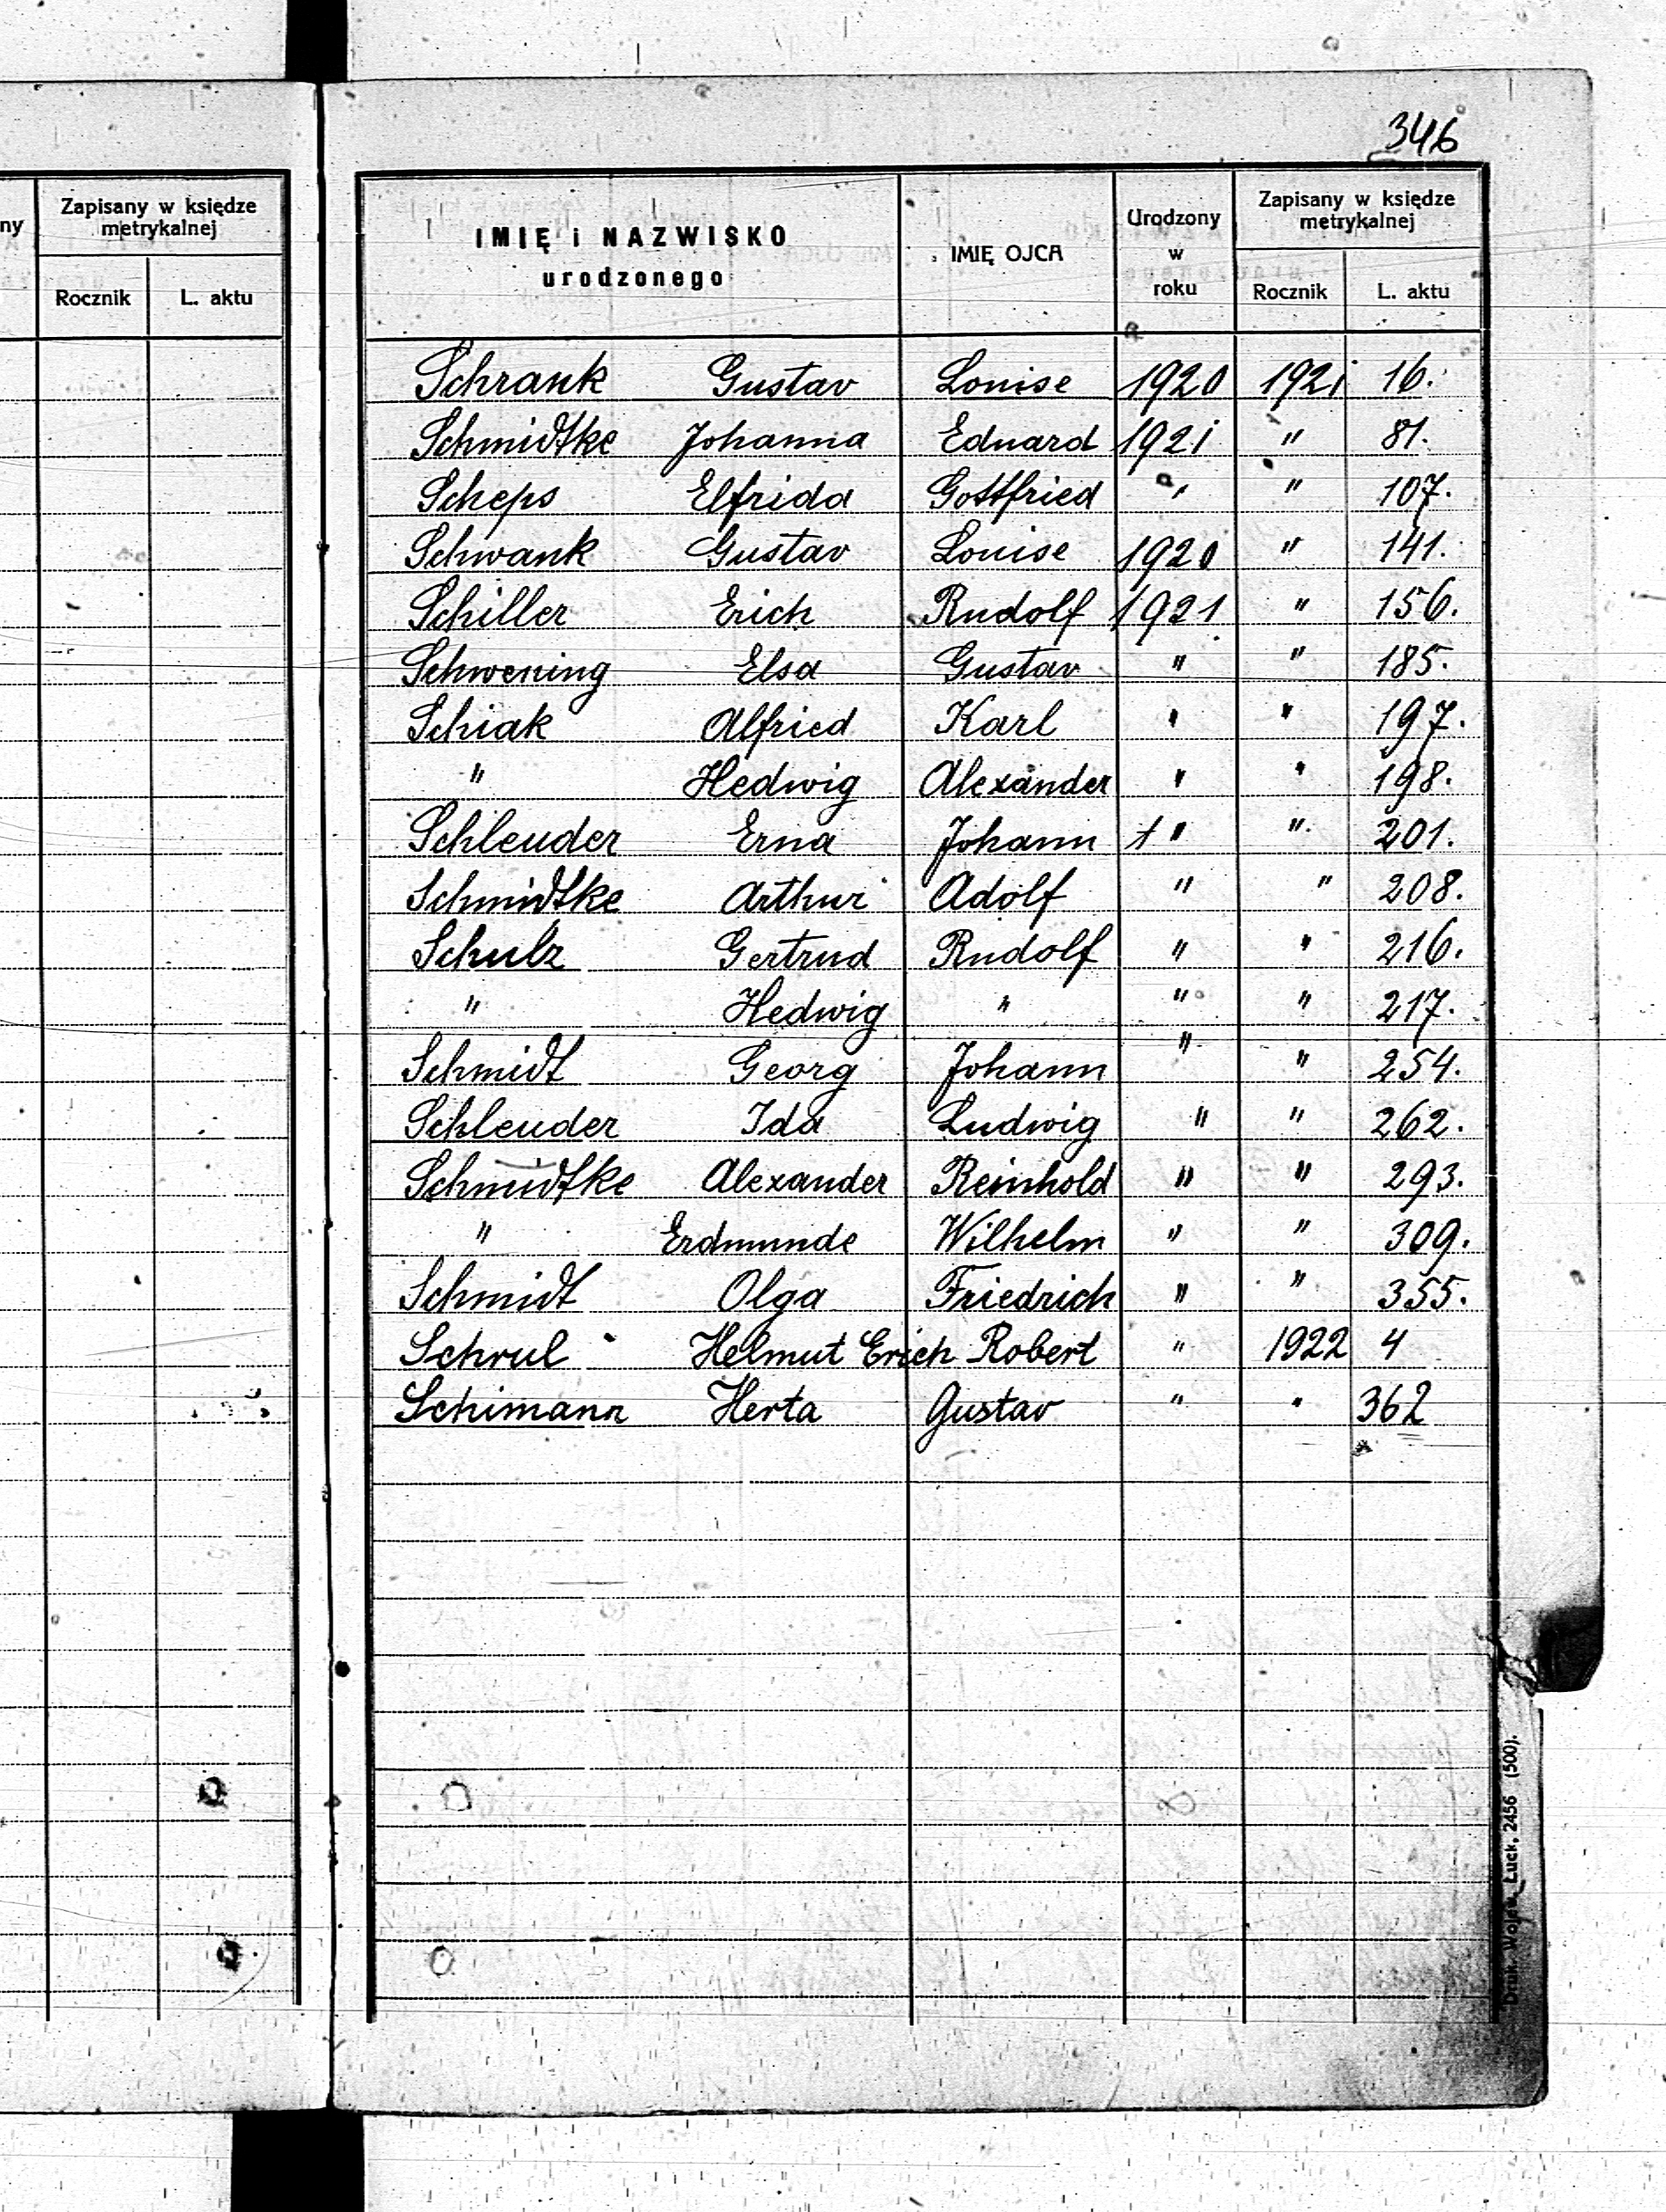 346
ny
Zapisany w księdze
metrykalnej
Rocznik L. aktu
IMIĘ i NAZWISKO
urodzonego
IMIĘ OJCA
Urodzony
w
roku
Zapisany w księdze
metrykalnej
Rocznik L. aktu
Schrank Gustav Louise 1920 1921 16.
Schmidtke Johanna Eduard 1921 " 81.
Scheps Elfrida Gottfried " " 107.
Schwank Gustav Louise 1920 " 141.
Schiller Erich Rudolf 1921 " 156.
Schwening Elsa Gustav " " 185.
Schiak Alfried Karl " " 197.
" Hedwig Alexander " " 198.
Schleuder Erna Johann † " " 201.
Schmidtke Arthur Adolf " " 208.
Schulz Gertrud Rudolf " " 216.
" Hedwig " " " 217.
Schmidt Georg Johann " " 254.
Schleuder Ida Ludwig " " 262.
Schmidtke Alexander Reinhold " " 293.
" Erdmunde Wilhelm " " 309.
Schmidt Olga Friedrich " " 355.
Schrul Helmut Erich Robert " 1922 4
Schimann Herta Gustav " " 362
Druk. Wojew. Łuck, 2456 (500).